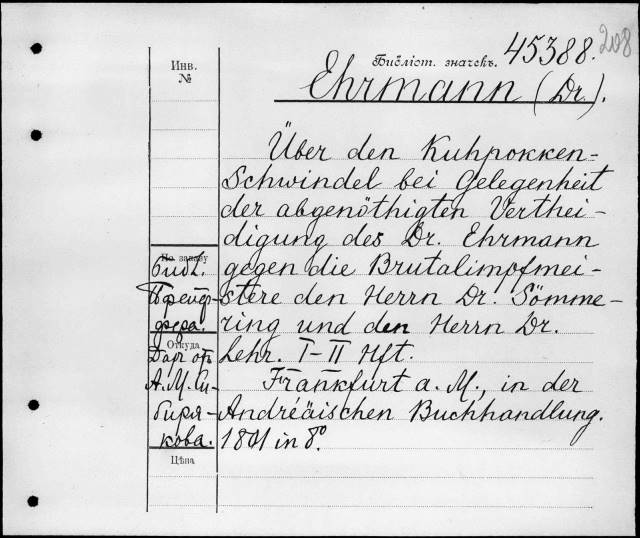 208
Библіот. значекъ. 45388.
Инв.
№
Ehrmann (Dr.).
Über den Kuhpokken-
Schwindel bei Gelegenheit
der abgenöthigten Verthei-
digung des Dr. Ehrmann
gegen die Brutalimpfmei-
stere den Herrn Dr. Sömme-
ring und den Herrn Dr.
Lehr. I-II Hft.
Frankfurt a. M., in der
Andreäischen Buchhandlung.
1801 in 8°
По заказу
Библ.
Откуда
Даръ отъ
А. М. Си-
биря-
кова.
Цѣна